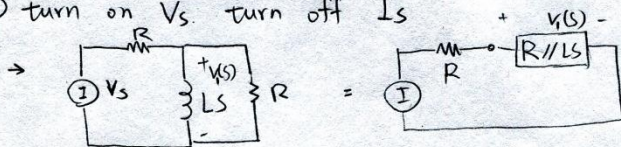 turn on Vs. turn off Is
→ R + V₁(S) - LS R I Vs
= I R + V₁(S) - R//LS